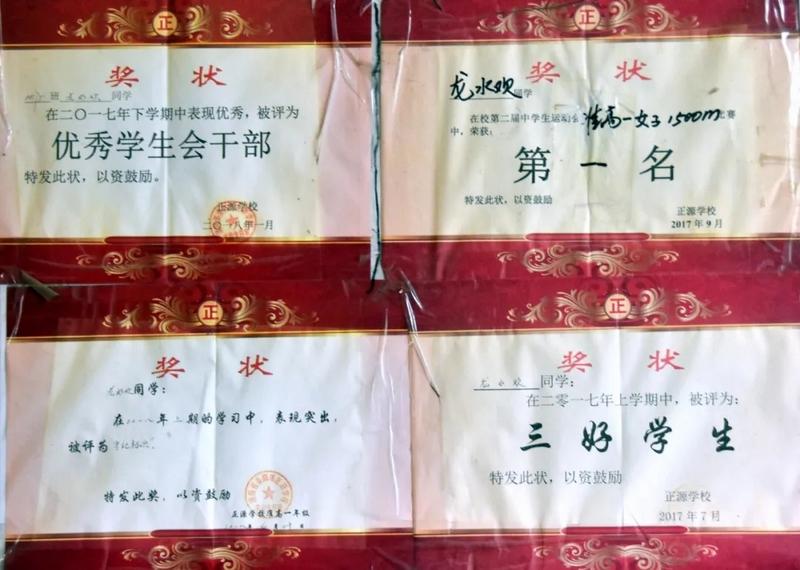 正
奖 状
班 同学
在二〇一七年下学期中表现优秀，被评为
优秀学生会干部
特发此状，以资鼓励。
正源学校
二〇一八年一月
正
奖 状
龙水欢同学
在校第二届中学生运动会准高一女子1500m比赛
中，荣获：
第一名
特发此状，以资鼓励
正源学校
2017年9月
正
奖 状
龙水欢同学：
在二〇一八年上期的学习中，表现突出，
被评为
特发此奖，以资鼓励
正源学校准高一年级
正
奖 状
龙水欢同学：
在二零一七年上学期中，被评为：
三好学生
特发此状，以资鼓励
正源学校
2017年7月